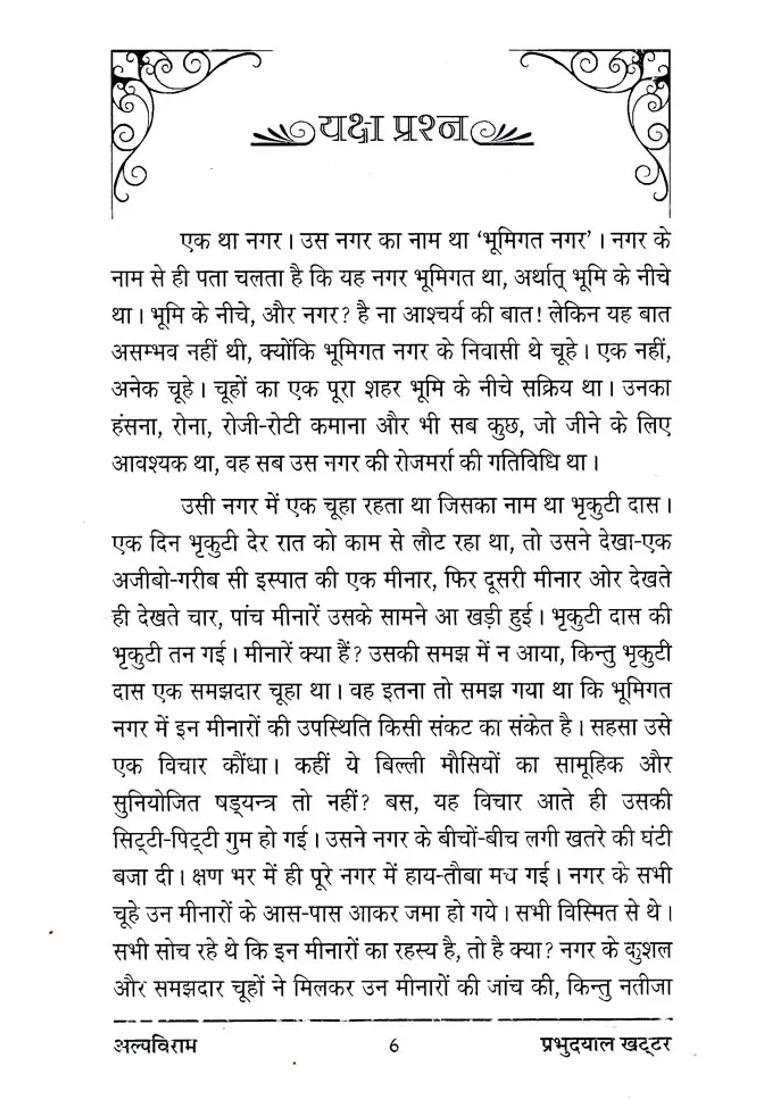 यक्ष प्रश्न
एक था नगर। उस नगर का नाम था ‘भूमिगत नगर’। नगर के
नाम से ही पता चलता है कि यह नगर भूमिगत था, अर्थात् भूमि के नीचे
था। भूमि के नीचे, और नगर? है ना आश्चर्य की बात! लेकिन यह बात
असम्भव नहीं थी, क्योंकि भूमिगत नगर के निवासी थे चूहे। एक नहीं,
अनेक चूहे। चूहों का एक पूरा शहर भूमि के नीचे सक्रिय था। उनका
हंसना, रोना, रोजी-रोटी कमाना और भी सब कुछ, जो जीने के लिए
आवश्यक था, वह सब उस नगर की रोजमर्रा की गतिविधि था।
उसी नगर में एक चूहा रहता था जिसका नाम था भृकुटी दास।
एक दिन भृकुटी देर रात को काम से लौट रहा था, तो उसने देखा-एक
अजीबो-गरीब सी इस्पात की एक मीनार, फिर दूसरी मीनार ओर देखते
ही देखते चार, पांच मीनारें उसके सामने आ खड़ी हुई। भृकुटी दास की
भृकुटी तन गई। मीनारें क्या हैं? उसकी समझ में न आया, किन्तु भृकुटी
दास एक समझदार चूहा था। वह इतना तो समझ गया था कि भूमिगत
नगर में इन मीनारों की उपस्थिति किसी संकट का संकेत है। सहसा उसे
एक विचार कौंधा। कहीं ये बिल्ली मौसियों का सामूहिक और
सुनियोजित षड्यन्त्र तो नहीं? बस, यह विचार आते ही उसकी
सिट्टी-पिट्टी गुम हो गई। उसने नगर के बीचों-बीच लगी खतरे की घंटी
बजा दी। क्षण भर में ही पूरे नगर में हाय-तौबा मच गई। नगर के सभी
चूहे उन मीनारों के आस-पास आकर जमा हो गये। सभी विस्मित से थे।
सभी सोच रहे थे कि इन मीनारों का रहस्य है, तो है क्या? नगर के कुशल
और समझदार चूहों ने मिलकर उन मीनारों की जांच की, किन्तु नतीजा
अल्पविराम 6 प्रभुदयाल खट्टर